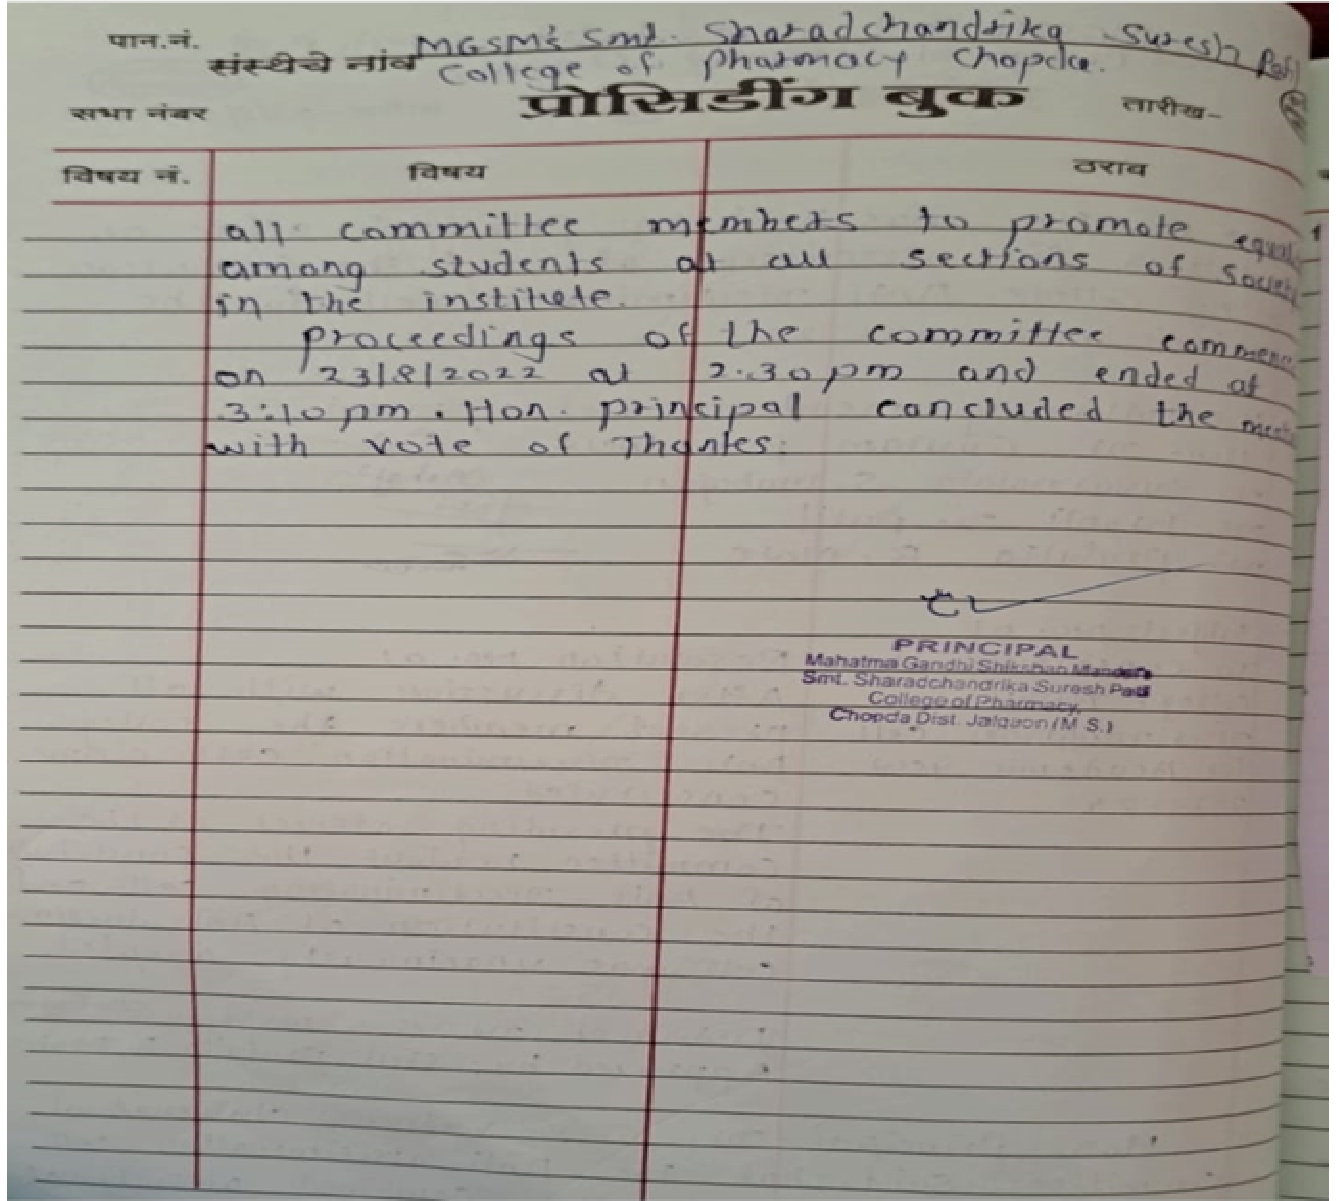 पान.नं.
संस्थेचे नांव MGSM's Smt. Sharadchandrika Suresh Patil
College of Pharmacy Chopda.
सभा नंबर प्रोसिडींग बुक तारीख-
विषय नं. विषय ठराव
all committee members to promote equal
among students at all sections of Society
in the institute.
proceedings of the committee commenc
on 23/8/2022 at 2.30 pm and ended at
3:10 pm. Hon. principal concluded the
with vote of Thanks.
PRINCIPAL
Mahatma Gandhi Shikshan Mandal's
Smt. Sharadchandrika Suresh Patil
College of Pharmacy,
Chopda Dist. Jalgaon (M.S.)